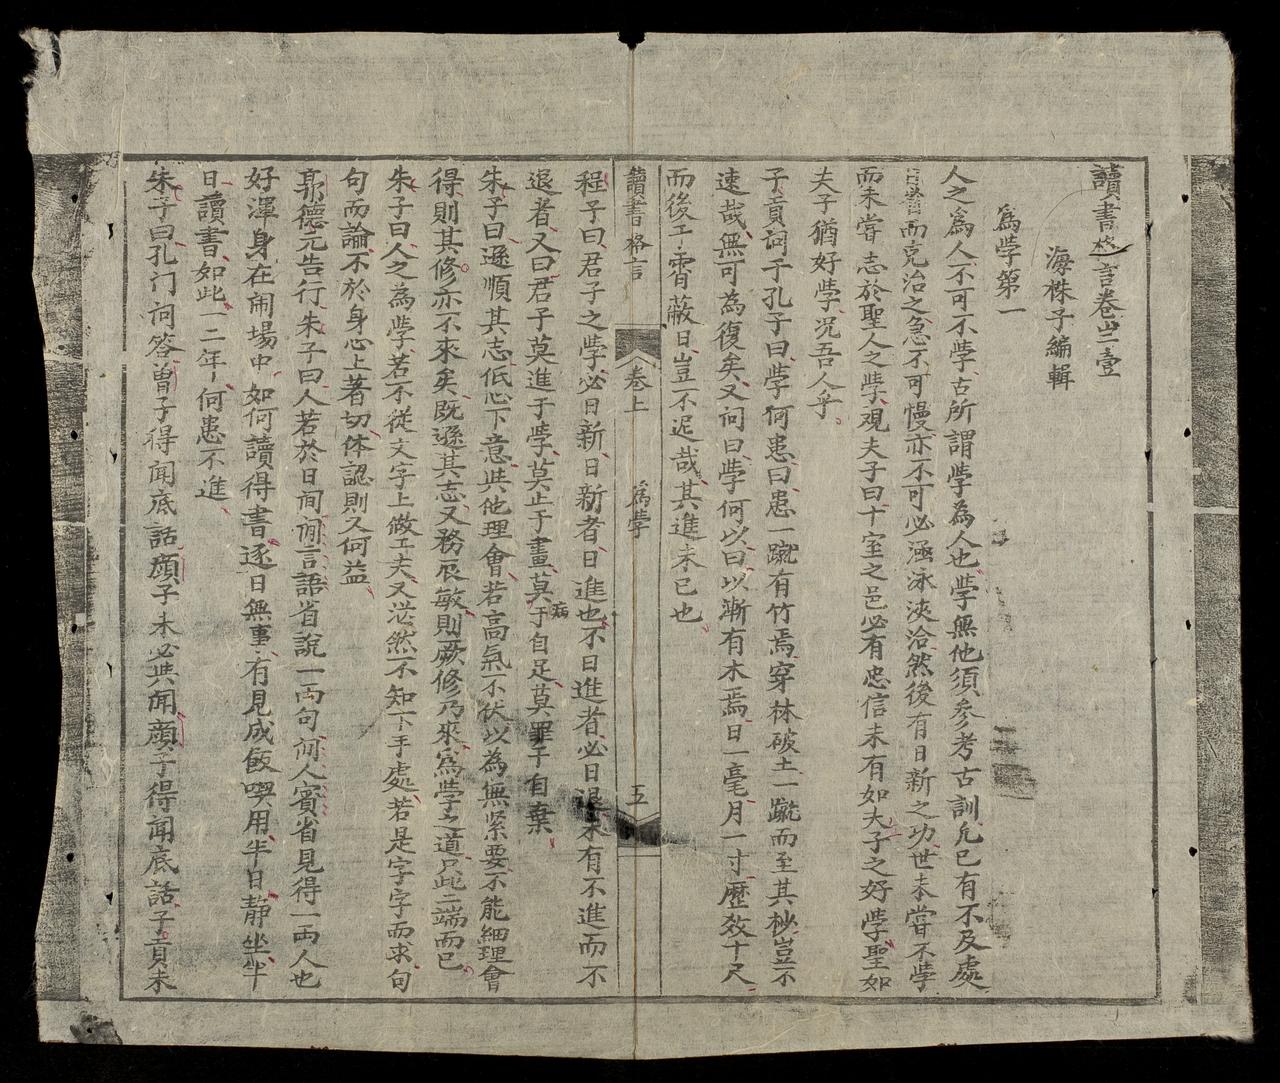 讀書格言卷之壹
海株子編輯
為學第一
人之為人不可不學古所謂學為人也學無他須參考古訓凡已有不及處
皆當而克治之急不可慢亦不可必涵泳浹洽然後有日新之功世未嘗不學
而未嘗志於聖人之學观夫子曰十室之邑必有忠信未有如夫子之好學聖如
夫子猶好學况吾人乎
子貢问于孔子曰學何患曰患一蹴有竹焉穿林破土一蹴而至其杪豈不
速哉無可為復矣又问曰學何以曰以漸有木焉日一毫月一寸歷数十尺
而後干霄蔽日豈不迟哉其進未已也
讀書格言
卷上
為學
五
程子曰君子之學必日新日新者日進也不日進者必日退未有不進而不
退者又曰君子莫進于學莫止于畫莫病于自足莫罪于自棄
朱子曰遜順其志低心下意與他理會若高氣不伏以為無緊要不能細理會
得則其修亦不來矣既遜其志又務辰敏則厥修乃來為學之道只此二端而已
朱子曰人之為學若不從文字上做工夫又茫然不知下手處若是字字而求句
句而論不於身心上著切体認則又何益
郭德元告行朱子曰人若於日间闲言語省說一両句闲人賓省見得一両人也
好渾身在闹場中如何讀得書逐日無事有見成飯喫用半日静坐半
日讀書如此一二年何患不進
朱子曰孔门问答曾子得闻底話顔子未必與闻顔子得闻底話子貢未